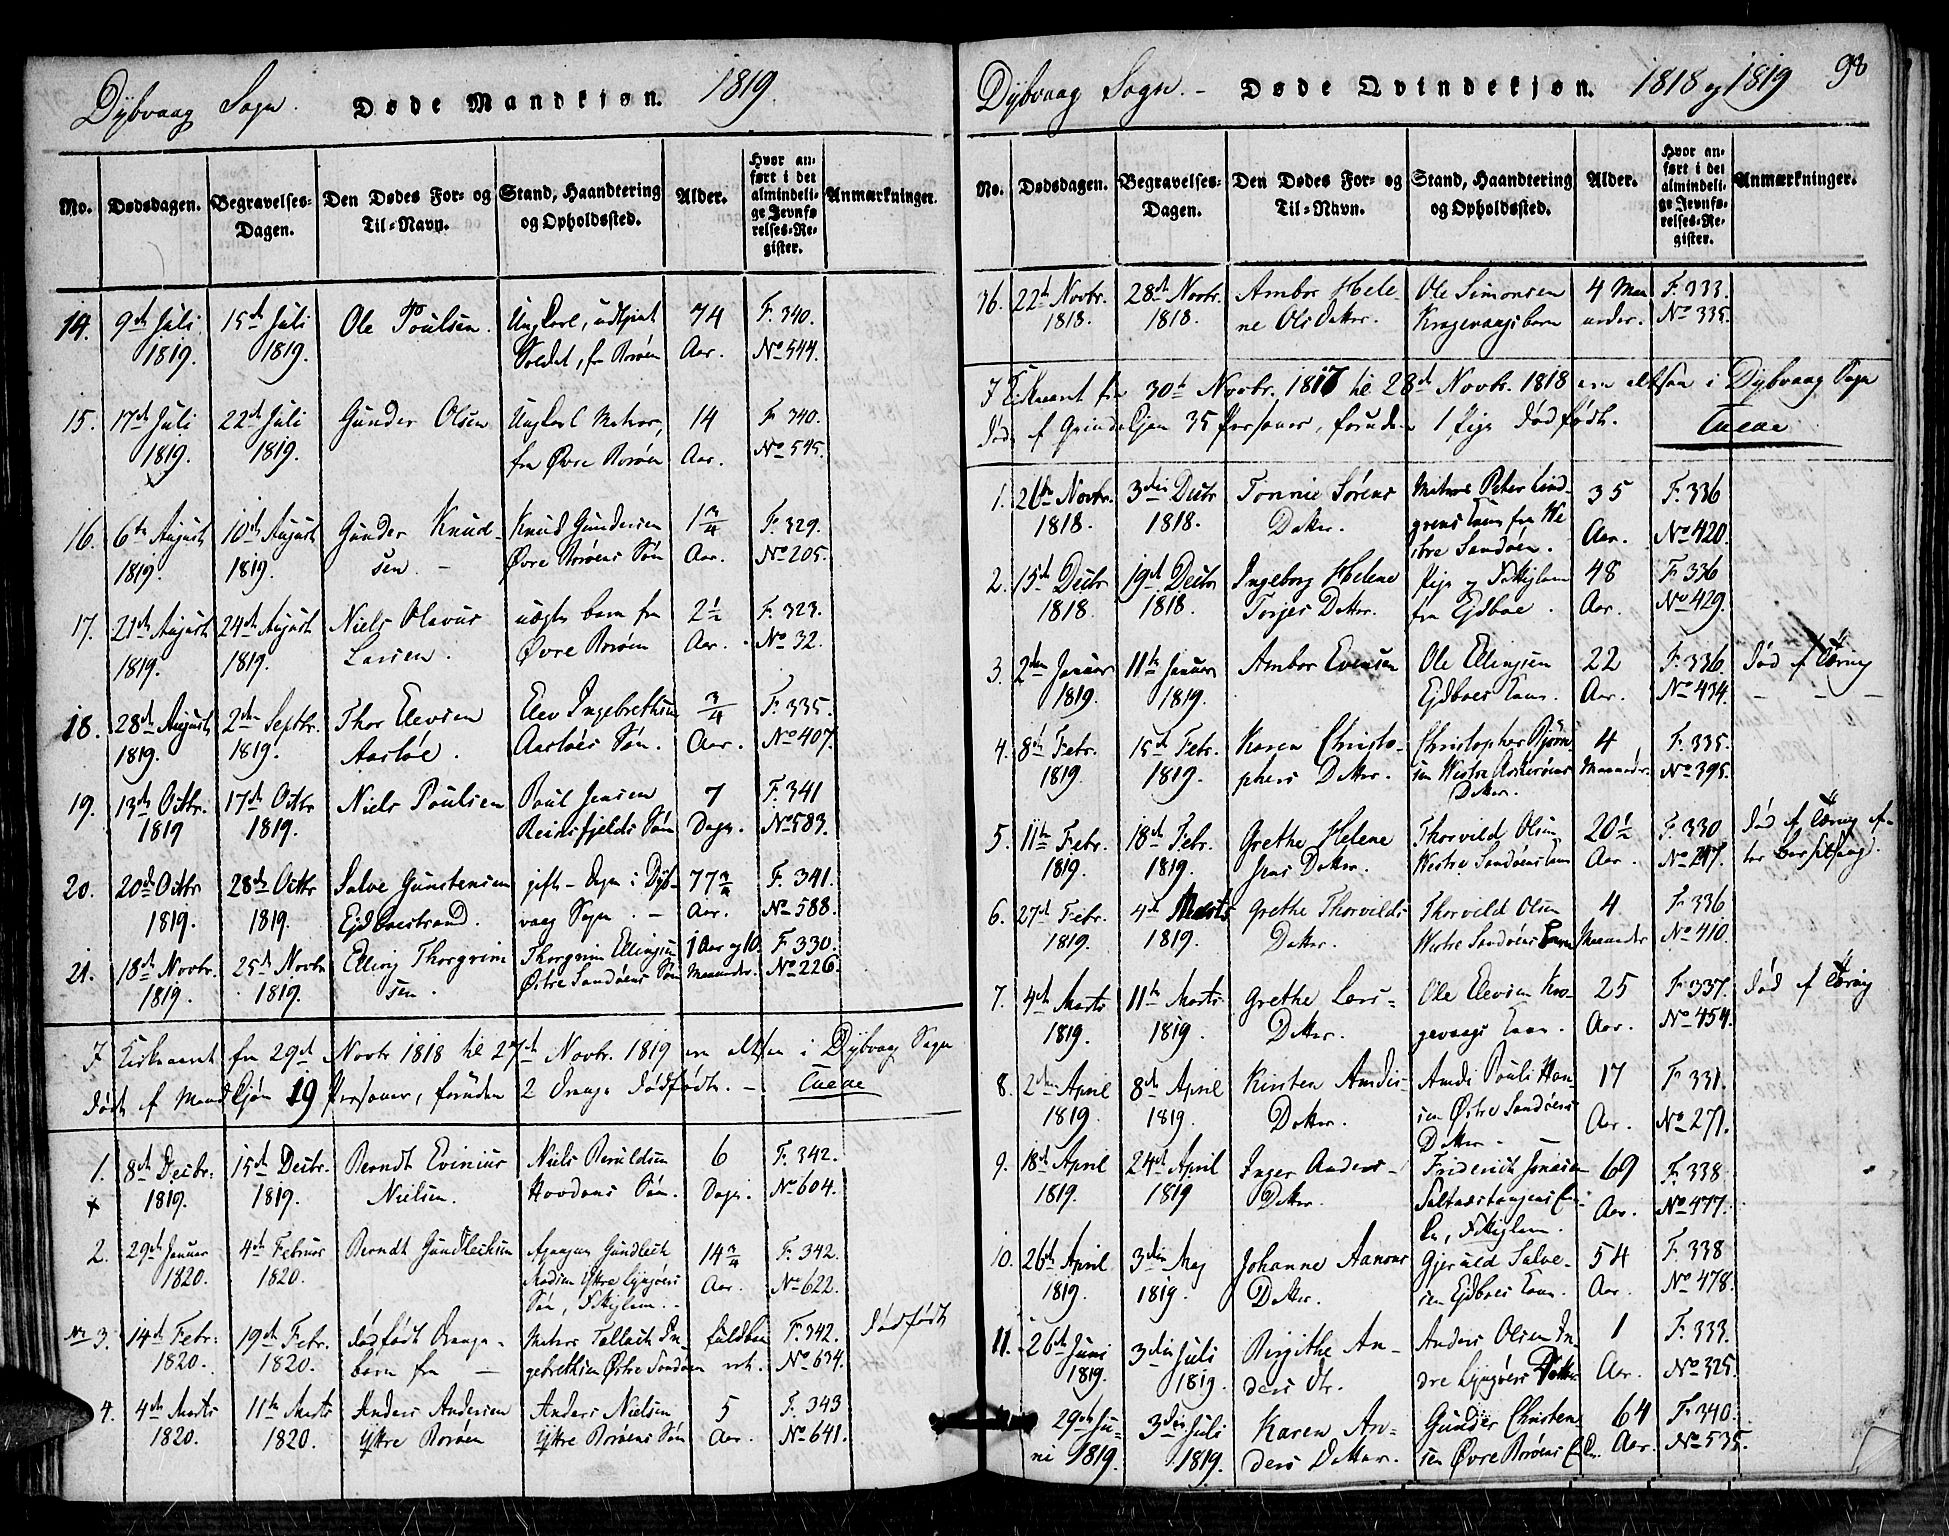 Dybvaag Sogn. Døde Mandkjøn. 1819.
No. Dødsdagen. Begravelses-Dagen. Den Dødes For- og Til-Navn. Stand, Haandtering og Opholdssted. Alder. Hvor anført i det almindelige Jevnførelses-Register. Anmærkninger.
14. 9de Juli 1819. 15de Juli 1819. Ole Poulsen. Ungkarl, udtjent Soldat, fra Borøen 74 Aar. F. 340. No 544.
15. 17de Juli 1819. 22de Juli 1819. Gunder Olsen Ungkarl Matros, fra Øvre Borøen 14 Aar. F. 340. No 545.
16. 6te August 1819. 10de August 1819. Gunder Knudsen. Knud Gundersen Øvre Borøens Søn 1 3/4 Aar. F. 329. No 205.
17. 21de August 1819. 24de August 1819. Niels Olavus Larsen. uægte barn fra Øvre Borøen 2 1/2 Aar. F. 323. No 32.
18. 28de August 1819. 2den Septbr. 1819. Thor Elevsen Aasløe. Elev Ingebrethsen Aasløes Søn. 3/4 Aar. F. 335. No 407.
19. 13de Octbr. 1819 17de Octbr 1819. Niels Poulsen Poul Jensen Reinsfjelds Søn 7 Dage. F. 341 No 583.
20. 20de Octbr 1819. 28de Octbr 1819. Salve Gunstensen Ejdboestrand. gift - i Dybvaag Sogn. 77 3/4 Aar. F. 341. No 588.
21. 18de Novbr. 1819. 25de Novbr 1819. Elling Thorgrimsen. Thorgrim Ellingsen Østre Sandøens Søn 1 Aar og 10 Maaneder. F. 330. No 226.
I Kirkeaaret fra 29de Novbr 1818 til 27de Novbr. 1819 ere altsaa i Dybvaag Sogn
døde af Mandkjøn 19 Personer, foruden 2 Drenge dødfødte. -
1. 8de Decbr. 1819. 15de Decbr. 1819. Berndt Evinius Nielsen. Niels Beruldsen Hovdans Søn. 6 Dage. F. 342. No 604.
2. 29de Januar 1820. 4de Februar 1820. Berndt Gundlechsen Gundlech Madsen Yttre Lyngøers Søn, 14 3/4 Aar. F. 342. No 622.
No 3. 14de Febr. 1820. 19de Febr. 1820. dødfødt Drengebarn fra - Matros Tellach Ingebrethsen Østre Sandøen fuldbaaret. F. 342. No 634. dødfødt
4. 4de Marts 1820. 11te Marts 1820. Anders Andersen Yttre Borøen Anders Nielsen Yttre Borøens Søn 5 Aar. F. 343 No 641.
Dybvaag Sogn. - Døde Qvindekjøn. 1818 og 1819 98
No. Dødsdagen. Begravelses-Dagen. Den Dødes For- og Til-Navn. Stand, Haandtering og Opholdssted. Alder. Hvor anført i det almindelige Jevnførelses-Register. Anmærkninger.
36. 22de Novbr. 1818. 28de Novbr. 1818. Ambor Helene Ols Datter. Ole Simonsen Kragevaags barn 4 Maaneder. F. 333. No 335.
I Kirkeaaret fra 30te Novbr. 1817 til 28de Novbr. 1818 ere altsaa i Dybvaag Sogn
døde af Qvindekjøn 35 Personer, foruden 1 Pige dødfødt.
1. 26de Novbr. 1818. 3die Decbr 1818. Tonnie Sørens Datter. Matros Peter Lindgrens Kone fra Westre Sandøen. 35 Aar. F. 336 No 420.
2. 15de Decbr 1818. 19de Decbr 1818. Ingeborg Helene Torjes Datter. Pige og fra Ejdboe. 48 Aar. F. 336 No 429.
3. 2den Januar 1819. 11te Januar 1819. Ambor Evensen Ole Ellingsen Ejdboes Kone. 22 Aar. F. 336. No 434. død af Tæring
4. 8de Febr. 1819. 15de Febr. 1819. Karen Christophers Datter. Christopher Bjørnsen Westre Askerøens Datter. 4 Maaneder. F. 335. No 395.
5. 11te Febr. 1819. 18de Febr. 1819. Grethe Helene Jens Datter. Thorvild Olsen Westre Sandøens Kone 20 1/2 Aar. F. 330 No 247. død af Tæring efter Barselseng.
6. 27de Febr. 1819. 4de Marts 1819. Grethe Thorvilds Datter. Thorvild Olsen Westre Sandøens Barn 4 Maaneder F. 336 No 410.
7. 4de Marts 1819. 11te Marts 1819. Grethe Lars-Datter. Ole Elevsen Kragevaags Kone. 25 Aar. F. 337. No 454. død af Tæring
8. 2den April 1819. 8de April 1819. Kirsten Amdis-Datter. Amdi Pouli Hansen Østre Sandøens Datter. - 17 Aar. F. 331. No 271.
9. 18de April 1819. 24de April 1819 Inger Anders-Datter. Friderich Jonasen Saltaastangens 69 Aar. F. 338 No 477.
10. 26de April 1819. 3die Maj 1819. Johanne Aanons Datter. Gjeruld Salvesen Ejdboes Kone. 54 Aar. F. 338 No 478.
11. 26de Juni 1819. 3die Juli 1819. Birgithe Anders Dtr. Anders Olsen Indre Lyngøers Datter 1 Aar. F. 333. No 325.
29de Juni 1819. 3die Juli 1819. Karen Anders Datter. Gunder Christensen Øvre Borøens 64 Aar. F. 340. No 535.